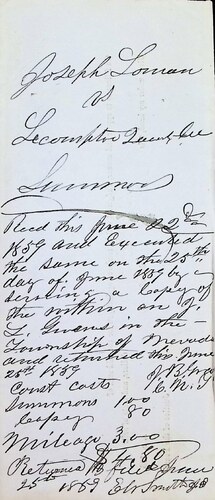 Joseph Loman
vs
Lecompton Town Co
Summons
Recd this June 22d
1859 and Executed
the same on the 25th
day of June 1859 by a
serving a copy of
the within on J.
L. Givens in the
Township of Nevada
and returned this June
25th 1859
Court costs
Summons 1.00
Copy 80
Mileage 3.00
Returned
25th 1859